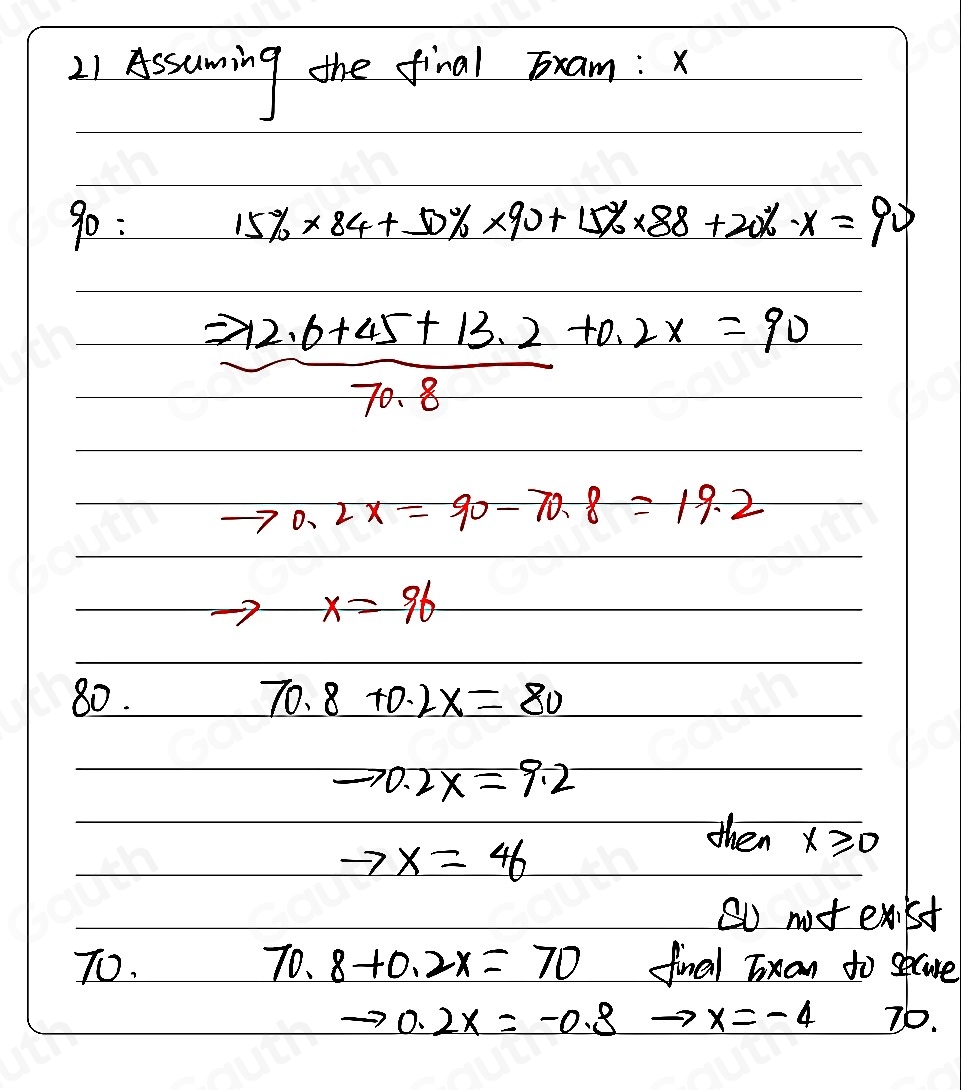 21 Assuming the final Exam : x
90 : 15% × 84 + 50% × 90 + 15% × 88 + 20% · x = 90
⇒ 12.6 + 45 + 13.2 + 0.2x = 90
70.8
→ 0.2x = 90 - 70.8 = 19.2
→ x = 96
80. 70.8 + 0.2x = 80
→ 0.2x = 9.2
→ x = 46
then x ≥ 0
so not exist
70. 70.8 + 0.2x = 70 final Exam to secure
→ 0.2x = -0.8 → x = -4 70.
Gauth